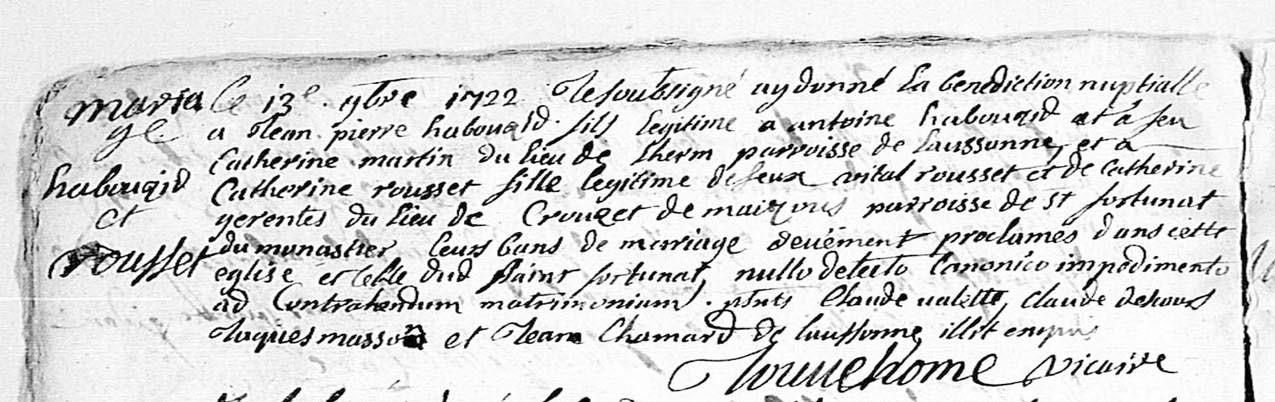 maria
ge
habouzid
et
rousset
le 13e. 9bre 1722 Je soubsigné ay donné la benediction nuptialle
a Jean pierre habouzid. fils legitime a antoine habouzid et a feu
Catherine martin du lieu de therm parroisse de laussonne, et a
Catherine rousset fille legitime de feux vital rousset et de Catherine
gerentes du lieu de Crouzet de maizous parroisse de st fortunat
du monastier leurs bans de mariage deüement proclamés dans cette
eglise et Celle dud saint fortunat, nullo detecto Canonico impedimento
ad Contrahendum matrimonium. pnts Claude valette, Claude dehours
Jaques masso et Jean Chamard de laussonne illit enquis
Jouvehome vicaire